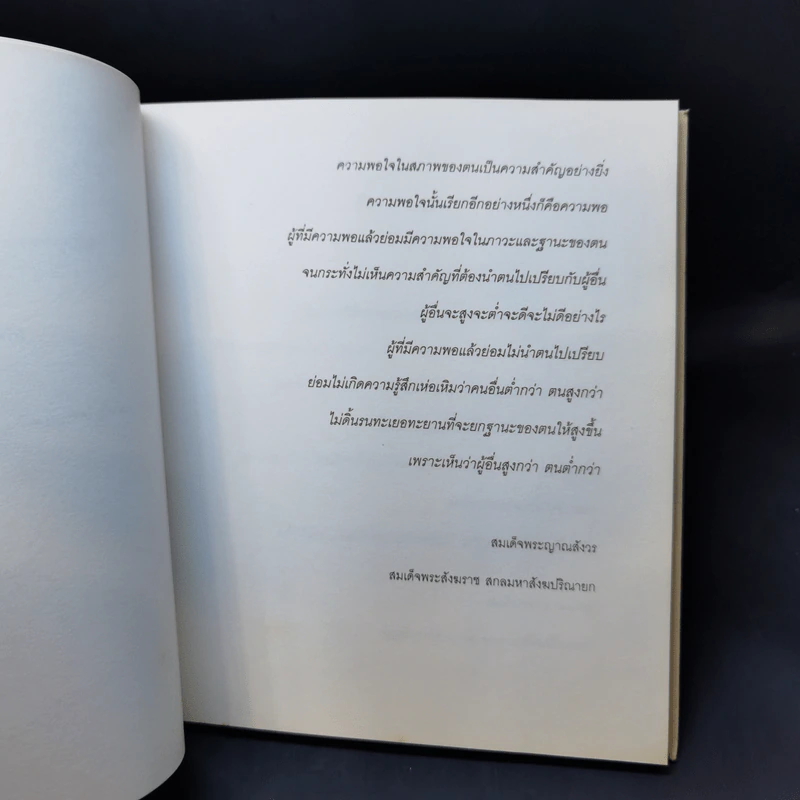 ความพอใจในสภาพของตนเป็นความสำคัญอย่างยิ่ง
ความพอใจนั้นเรียกอีกอย่างหนึ่งก็คือความพอ
ผู้ที่มีความพอแล้วย่อมมีความพอใจในภาวะและฐานะของตน
จนกระทั่งไม่เห็นความสำคัญที่ต้องนำตนไปเปรียบกับผู้อื่น
ผู้อื่นจะสูงจะต่ำจะดีจะไม่ดีอย่างไร
ผู้ที่มีความพอแล้วย่อมไม่นำตนไปเปรียบ
ย่อมไม่เกิดความรู้สึกเห่อเหิมว่าคนอื่นต่ำกว่า ตนสูงกว่า
ไม่ดิ้นรนทะเยอทะยานที่จะยกฐานะของตนให้สูงขึ้น
เพราะเห็นว่าผู้อื่นสูงกว่า ตนต่ำกว่า
สมเด็จพระญาณสังวร
สมเด็จพระสังฆราช สกลมหาสังฆปริณายก